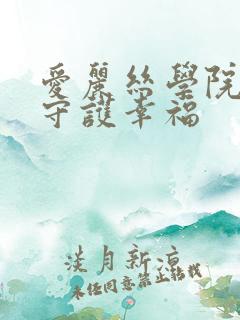 愛麗絲學院
守護幸福
淡月新涼
未經同意禁止轉載